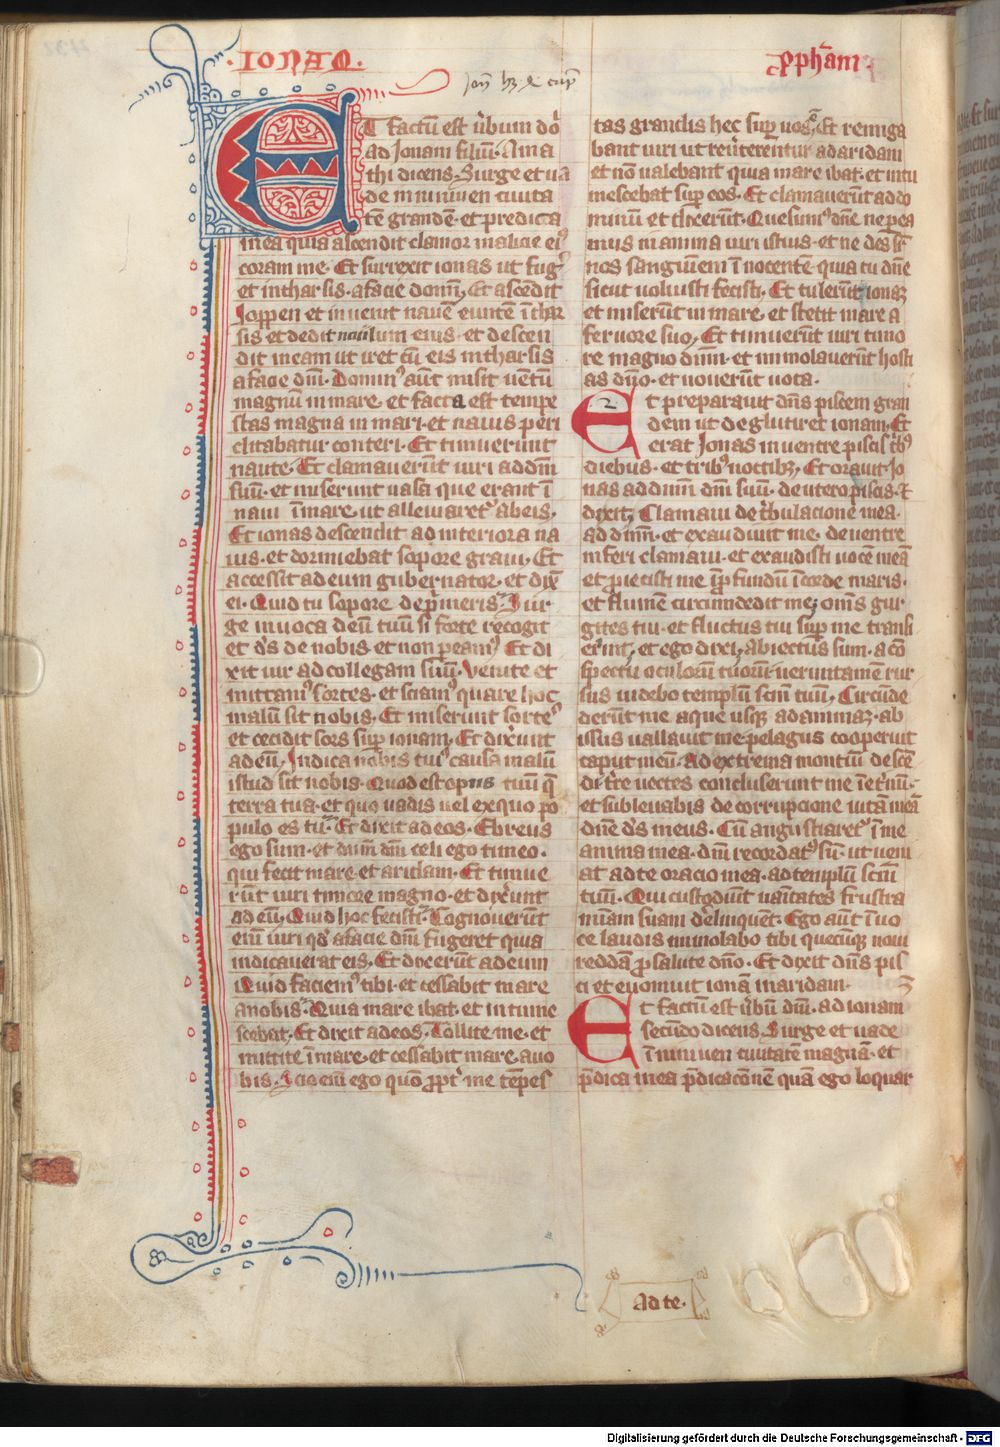 ·IONAS·
pphām
T factū est ůbum dō
ad Jonam filiū Ama
thi dicens. Surge et ua
de in niniuen ciuita
tē grandē et predica
in ea quia ascendit clamor malicie eiꝰ
coram me. Et surrexit ionas ut fugͥ
et in tharsis a facie domini. Et ascēdit
Joppen et inuenit nauē euntē ī thar
sis et dedit naulum eius et descen
dit in eam ut iret cū eis in tharsis
a facie dnī. Dominꝰ aūt misit uētū
magnū in mare et facta est tempe
stas magna in mari et nauis peri
clitabatur conteri. Et timuerunt
naute. Et clamauerūt uiri ad dm̄
suū et miserunt uasa que erant ī
naui ī mare ut alleuiaretꝰ ab eis.
Et ionas descendit ad interiora na
uis et dormiebat sopore graui. Et
accessit ad eum gubernator et dixͭ
ei. Quid tu sopore deprimeris. Sur
ge inuoca deū tuū si forte recogit
et d's de nobis et non peamꝰ. Et di
xit uir ad collegam suū. Venite et
mittamꝰ sortes et sciamꝰ quare hoc
malū sit nobis. Et miserunt sortes
et cecidit sors sup ionam. Et dixerunt
ad eū. Indica nobis cuiꝰ causa malū
istud sit nobis. Quod est opus tuū q̄
terra tua et quo uadis uel ex quo po
pulo es tu. Et dixit ad eos. Ebreus
ego sum et dnm̄ dm̄ celi ego timeo.
qui fecit mare et aridam. Et timue
rūt uiri timore magno et dixerunt
ad eū. Quid hoc fecisti. Cognouerūt
enī uiri qd' a facie dnī fugeret quia
indicauerat eis. Et dixerūt ad eum
Quid faciemꝰ tibi et cessabit mare
a nobis. Quia mare ibat et intume
scebat. Et dixit ad eos. Tollite me et
mittite ī mare et cessabit mare a uo
bis. Scio enī ego quō ppt' me tēpes
tas grandis hec sup uos. Et remiga
bant uiri ut reuerterentur ad aridam
et nō ualebant quia mare ibat et intu
mescebat sup eos. Et clamauerūt ad do
minū et dixerūt. Quesumꝰ dn̄e ne pea
mus in anima uiri istius et ne des sꝑ
nos sanguinem īnocentē quia tu dn̄e
sicut uoluisti fecisti. Et tulerūt ionaꝫ
et miserūt in mare et stetit mare a
feruore suo. Et timuerūt uiri timo
re magno dnm̄ et immolauerūt hosti
as dn̄o et uouerūt uota.
2
Et preparauit dn̄s piscem gran
dem ut deglutiret ionam. Et
erat Jonas in uentre piscis tb'ꝰ
diebus et tribꝰ noctibꝫ. Et orauit Jo
nas ad dnm̄ dm̄ suū de utero piscis. ⁊
dixit. Clamaui de tbulacione mea
ad dnm̄ et exaudiuit me. de uentre
inferi clamaui et exaudisti uocē meā
et piecisti me ī pfundū ī corde maris
et flumē circumdedit me. oms̄ gur
gites tui et fluctus tui sup me transi
erūt. et ego dixi. abiectus sum a cō
spectu oculorū tuorū ueruntamē rur
sus uidebo templū scm̄ tuū. Circūde
derūt me aque usqꝫ ad animaꝫ. ab
issus uallauit me pelagus cooperuit
caput meū. Ad extrema montiū desce
di. t're uectes concluserunt me ī et'nū.
et subleuabis de corrupcione uitā meā
dn̄e d's meus. Cū angustiaretꝰ ī me
anima mea. dnī recordatꝰ sū ut ueni
at ad te oracio mea. ad templū scm̄
tuū. Qui custodiūt uanitates frustra
mīam suam derelinquēt. Ego aūt ī uo
ce laudis immolabo tibi quecūqꝫ noui
reddā p salute dn̄o. Et dixit dn̄s pis
ci et euomuit ionā in aridam.
3
Et factū est ůbū dnī. ad ionam
secūdo dicens. Surge et uade
ī niniuen ciuitatē magnā et
pdica in ea pdicacōnē quā ego loquar
ad te.
Digitalisierung gefördert durch die Deutsche Forschungsgemeinschaft - DFG